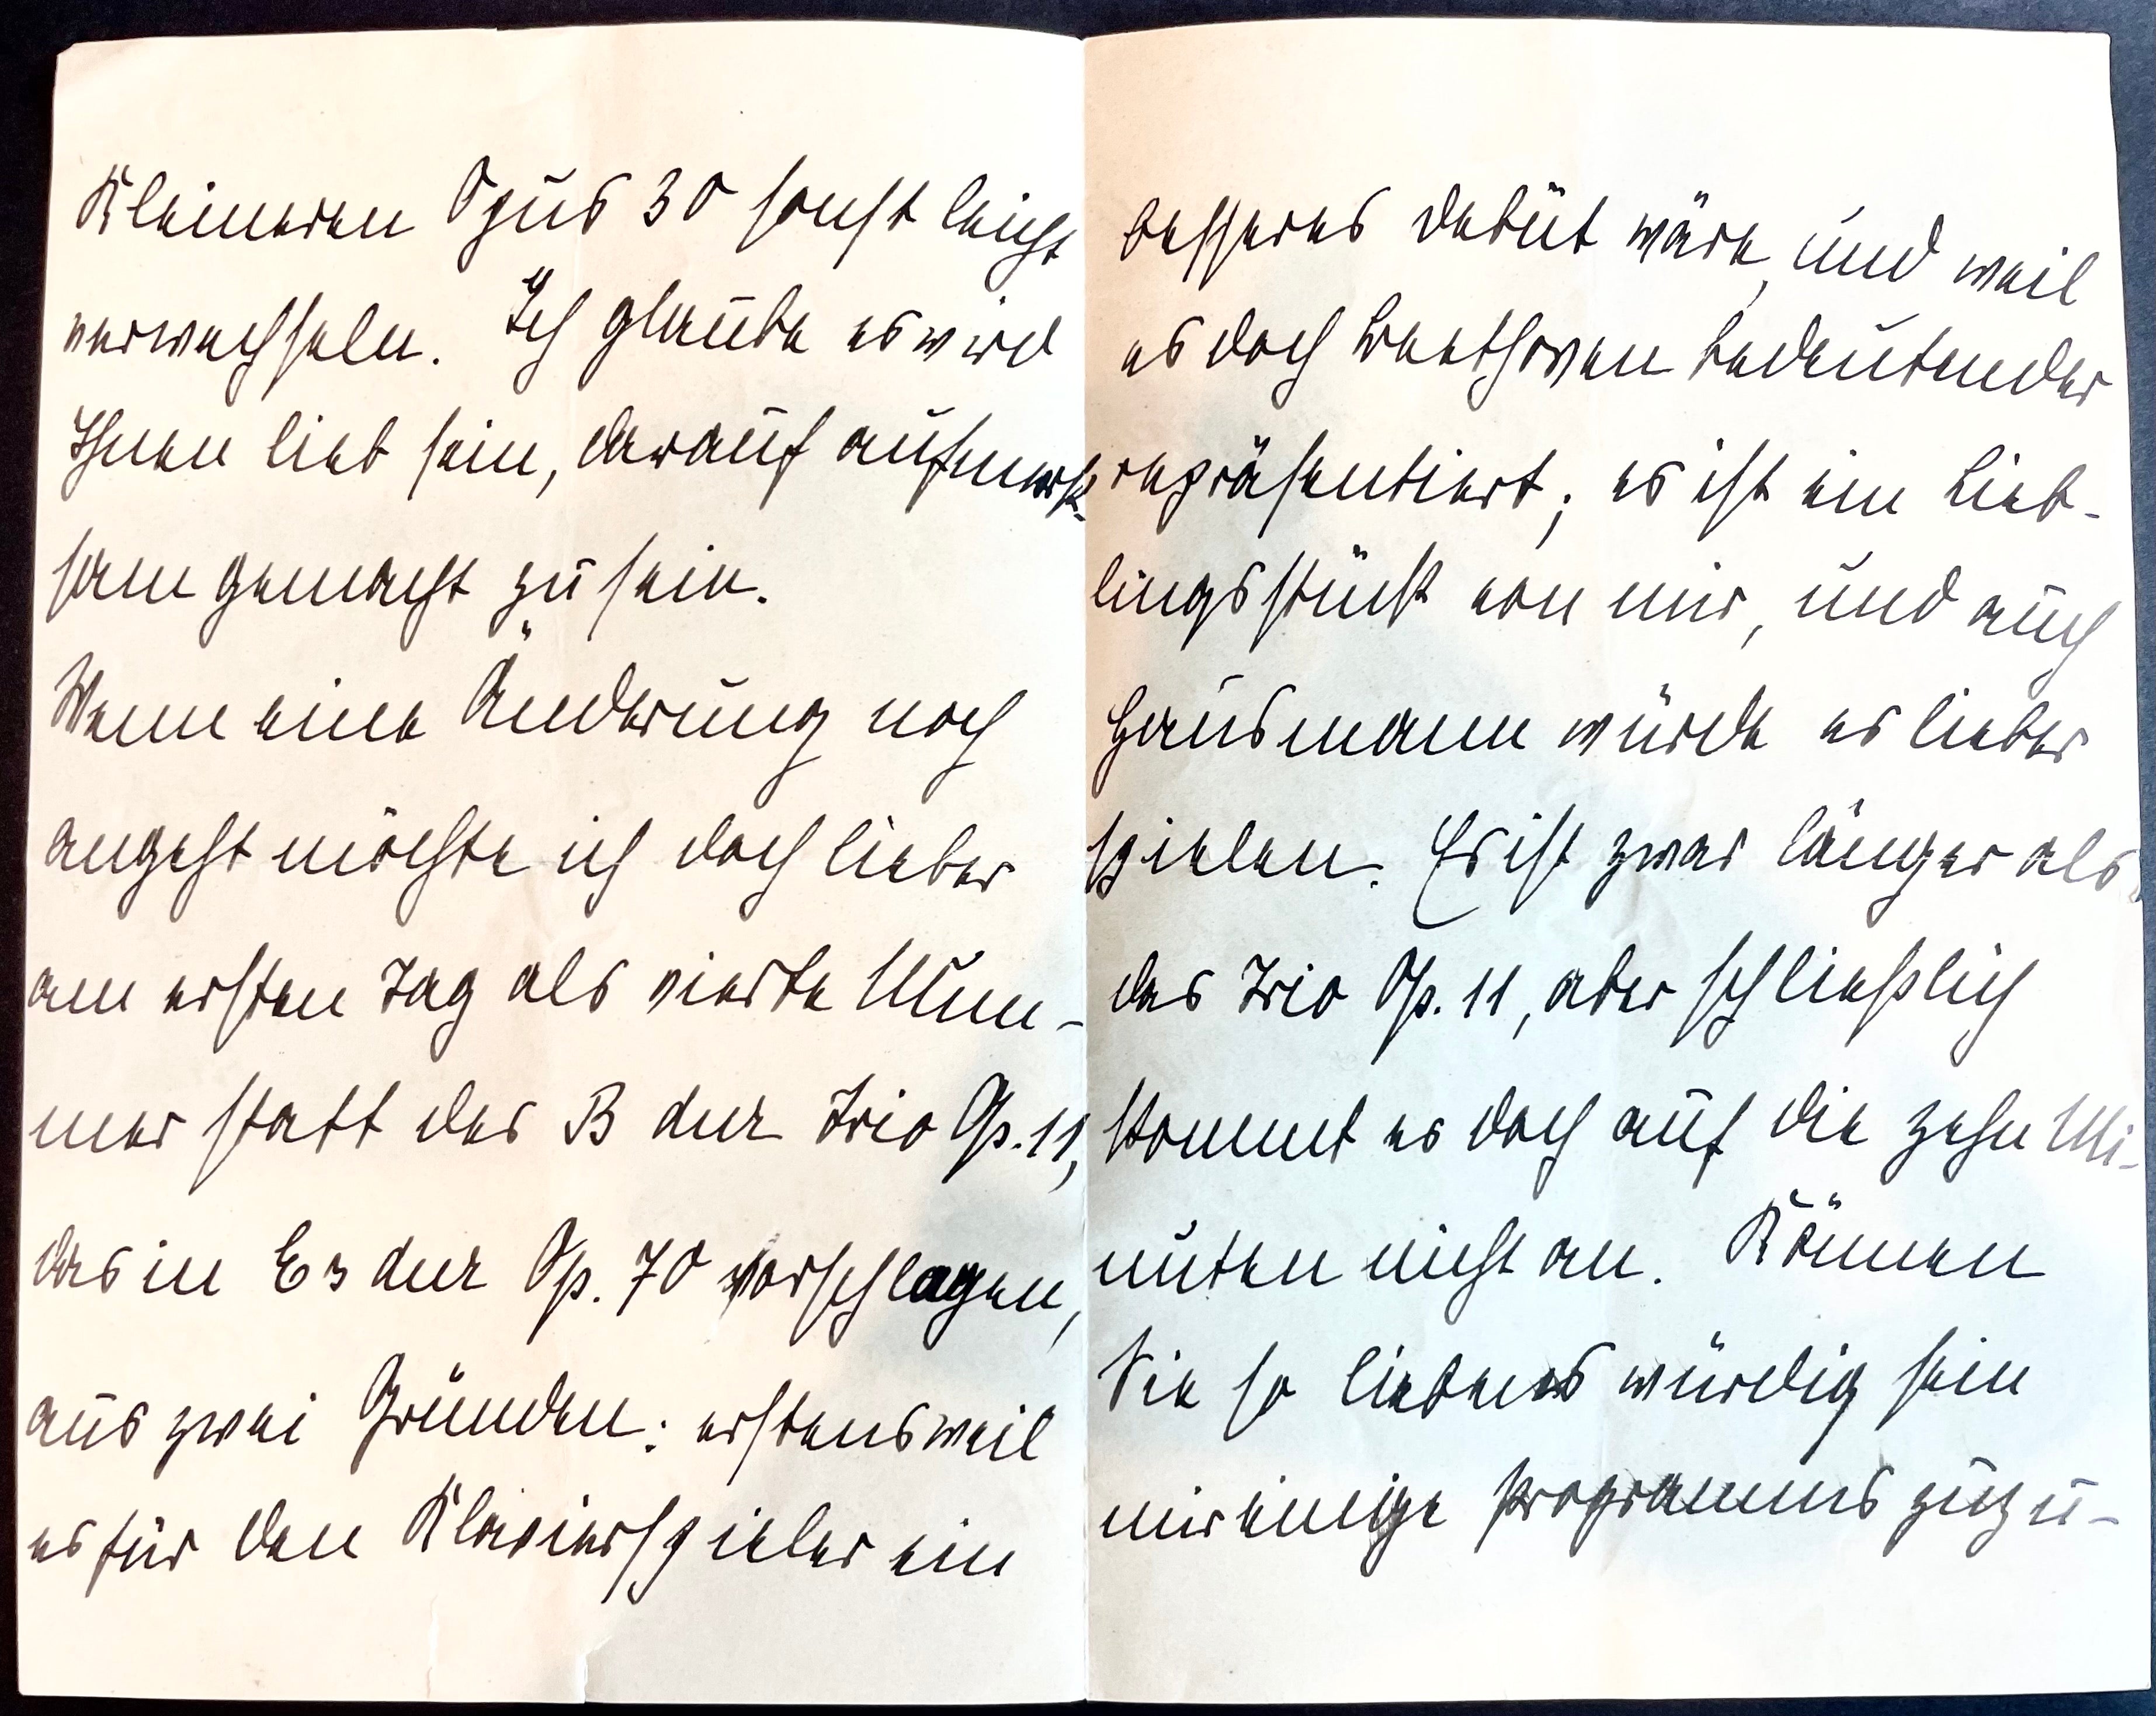 Kleineren Opus 30 sonst leicht
verwechseln. Ich glaube es wird
Ihnen lieb sein, darauf aufmerk-
sam gemacht zu sein.
Wenn eine Änderung noch
angeht möchte ich doch lieber
am ersten Tag als vierte Num-
mer statt des B dur Trio Op. 11,
das in Es dur Op. 70 vorschlagen,
aus zwei Gründen: erstens weil
es für den Klavierspieler ein
besseres Debüt wäre, und weil
es doch Beethoven bedeutender
repräsentiert; es ist ein Lieb-
lingsstück von mir, und auch
Hausmann würde es lieber
spielen. Es ist zwar länger als
das Trio Op. 11, aber schließlich
kommt es doch auf die zehn Mi-
nuten nicht an. Können
Sie so liebenswürdig sein
mir einige Programms zuzu-